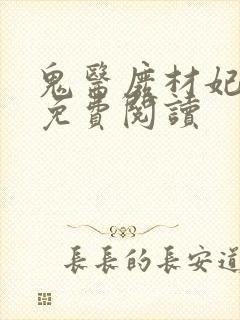 鬼醫廢材妃
免費閱讀
長長的長安道